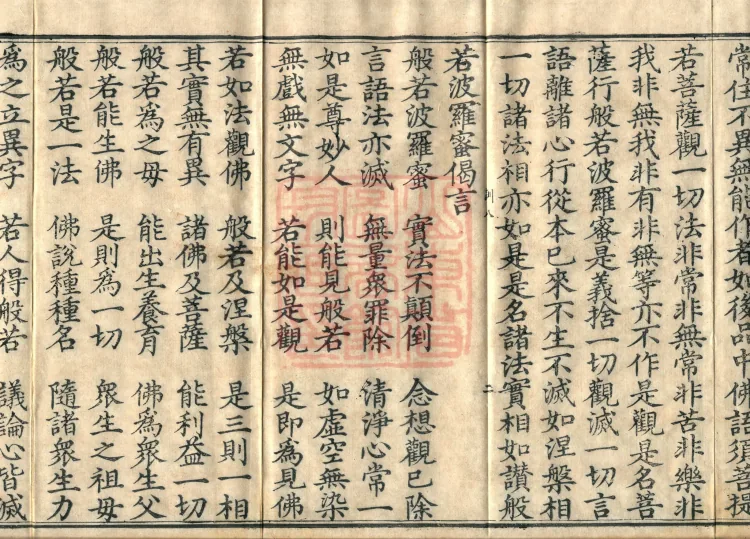 常住不異無能作者如後品中佛語須菩提
若菩薩觀一切法非常非無常非苦非樂非
我非無我非有非無等亦不作是觀是名菩
薩行般若波羅蜜是義捨一切觀滅一切言
語離諸心行從本已來不生不滅如涅槃相
一切諸法相亦如是是名諸法實相如讚般
二
若波羅蜜偈言
般若波羅蜜　實法不顛倒　念想觀已除
言語法亦滅　無量衆罪除　清淨心常一
如是尊妙人　則能見般若　如虛空無染
無戲無文字　若能如是觀　是即爲見佛
若如法觀佛　般若及涅槃　是三則一相
其實無有異　諸佛及菩薩　能利益一切
般若爲之母　能出生養育　佛爲衆生父
般若能生佛　是則爲一切　衆生之祖母
般若是一法　佛說種種名　隨諸衆生力
爲之立異字　若人得般若　議論心皆滅